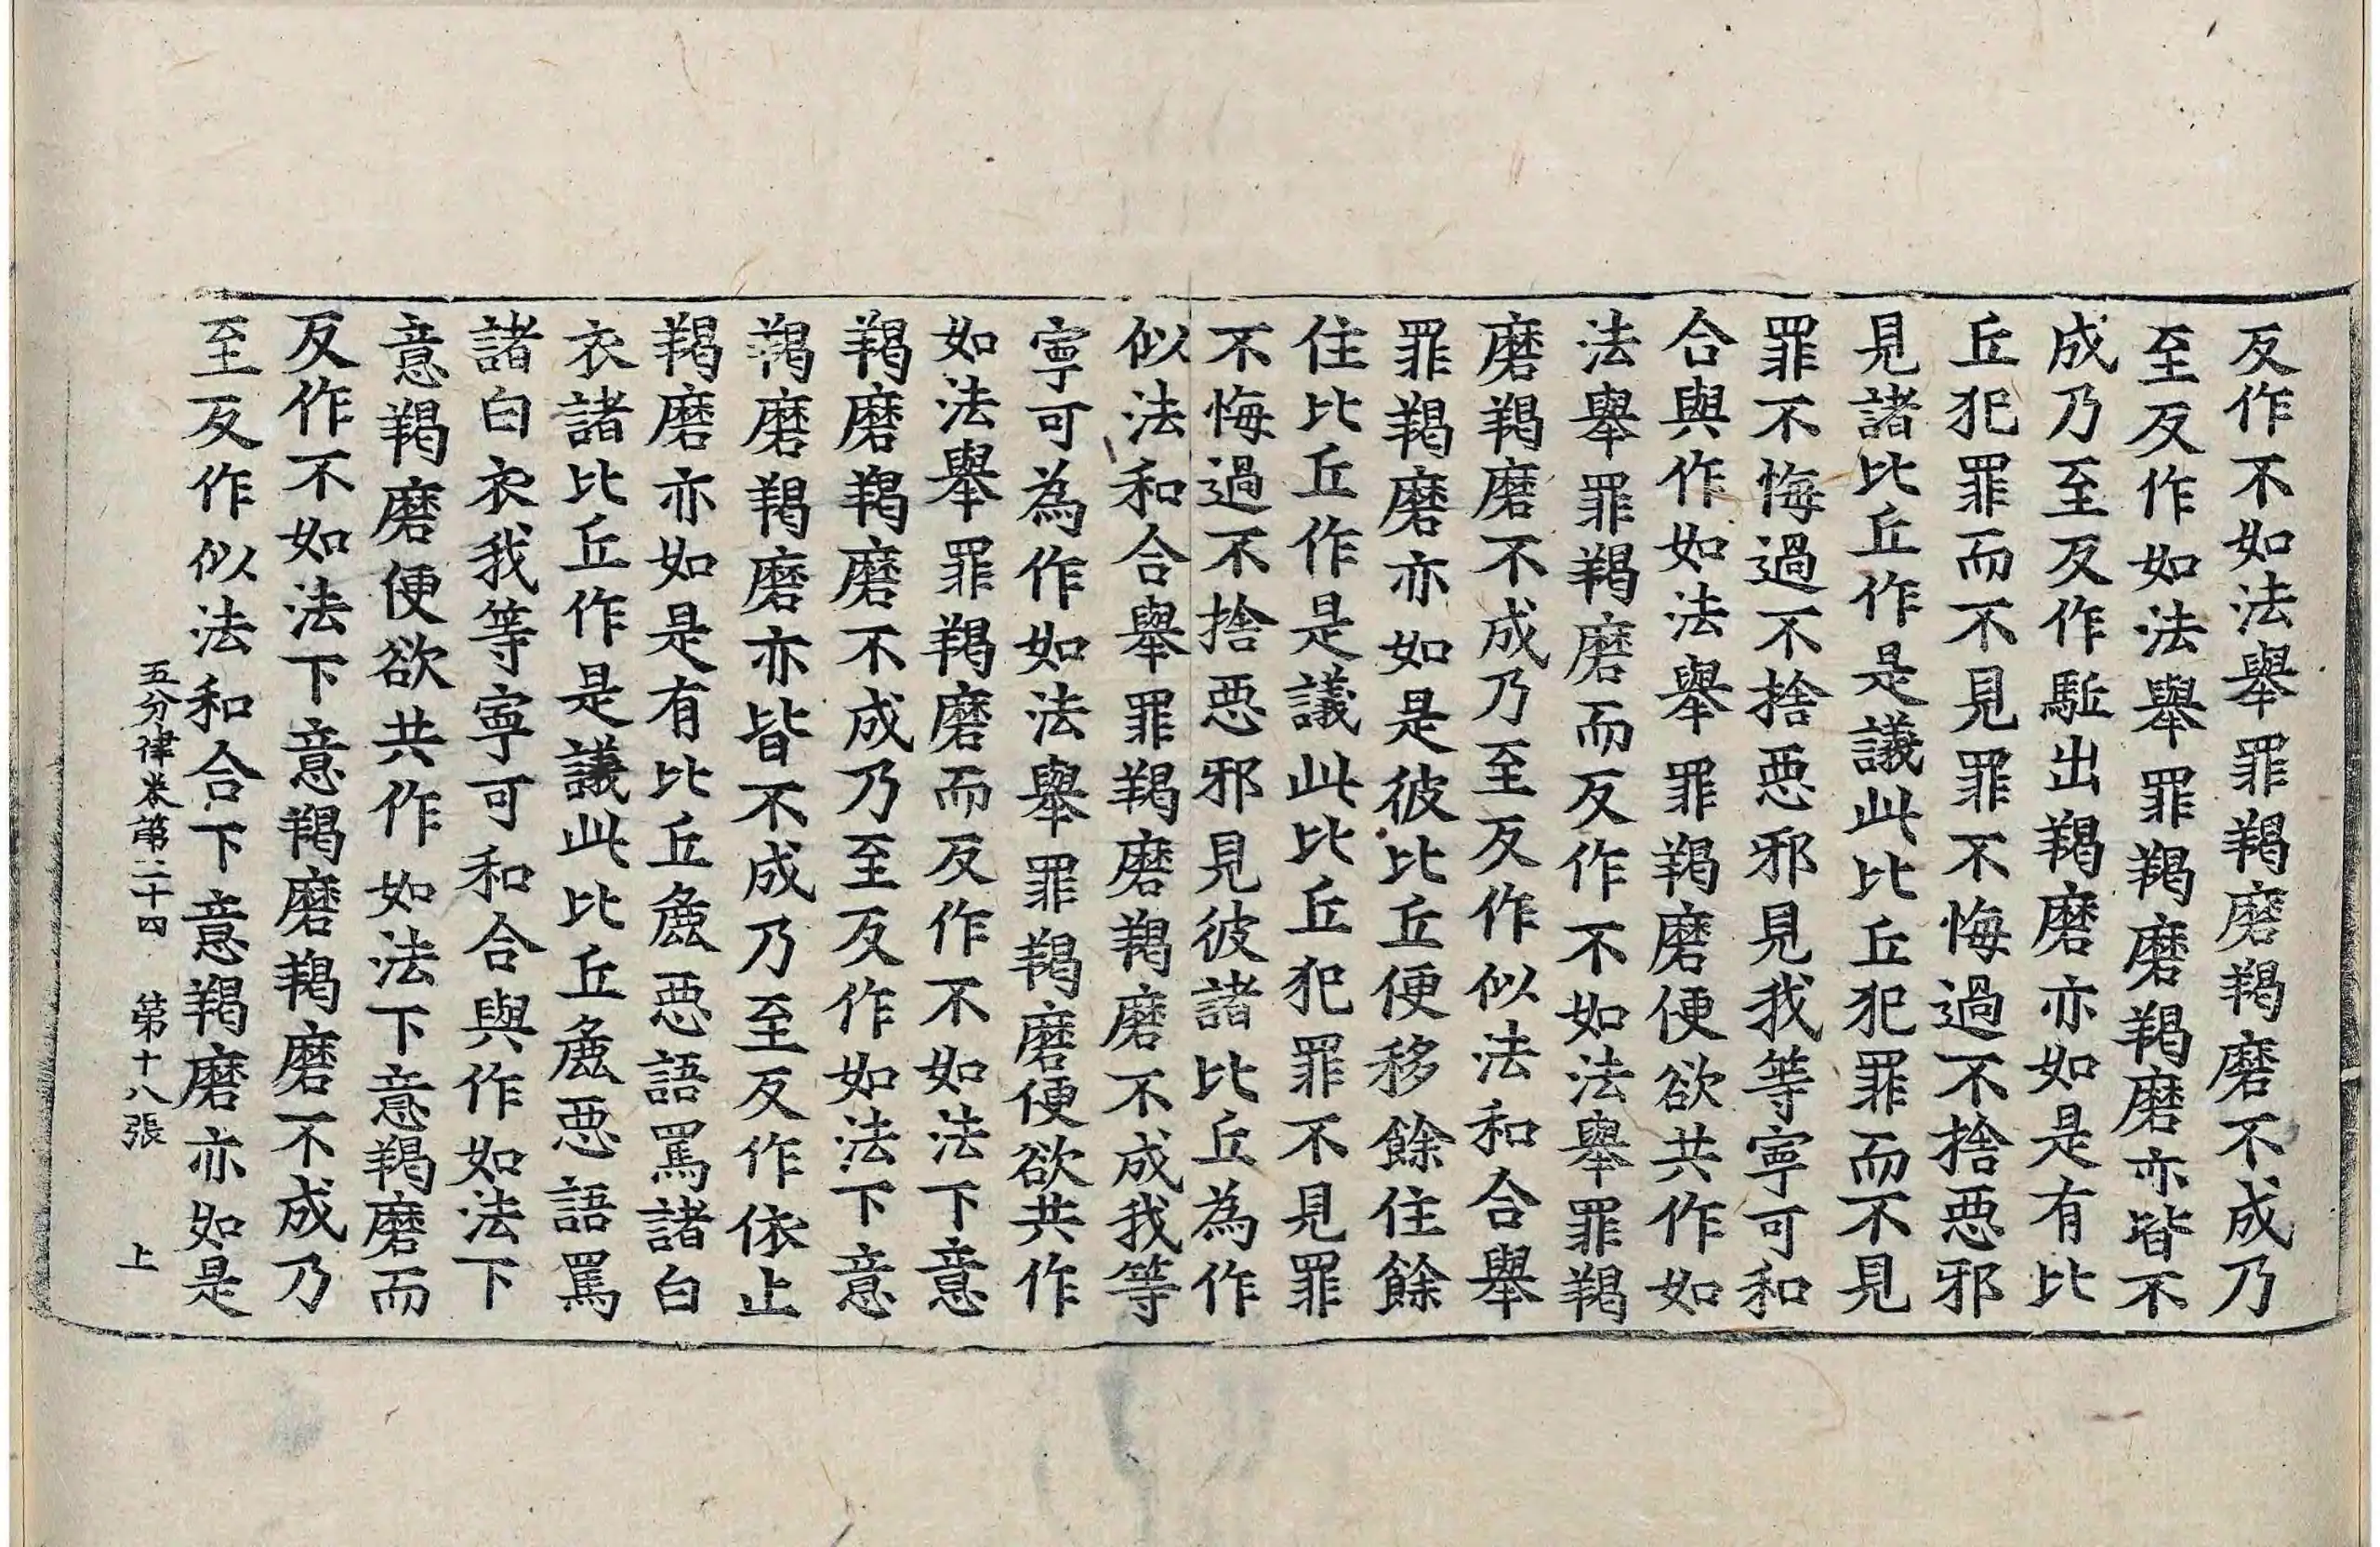 反作不如法舉罪羯磨羯磨不成乃
至反作如法舉罪羯磨羯磨亦皆不
成乃至反作駈出羯磨亦如是有比
丘犯罪而不見罪不悔過不捨惡邪
見諸比丘作是議此比丘犯罪而不見
罪不悔過不捨惡邪見我等寧可和
合與作如法舉罪羯磨便欲共作如
法舉罪羯磨而反作不如法舉罪羯
磨羯磨不成乃至反作似法和合舉
罪羯磨亦如是彼比丘便移餘住餘
住比丘作是議此比丘犯罪不見罪
不悔過不捨惡邪見彼諸比丘為作
似法和合舉罪羯磨羯磨不成我等
寧可為作如法舉罪羯磨便欲共作
如法舉罪羯磨而反作不如法下意
羯磨羯磨不成乃至反作如法下意
羯磨羯磨亦皆不成乃至反作依止
羯磨亦如是有比丘麁惡語罵諸白
衣諸比丘作是議此比丘麁惡語罵
諸白衣我等寧可和合與作如法下
意羯磨便欲共作如法下意羯磨而
反作不如法下意羯磨羯磨不成乃
至反作似法和合下意羯磨亦如是
五分律卷第二十四 第十八張 上